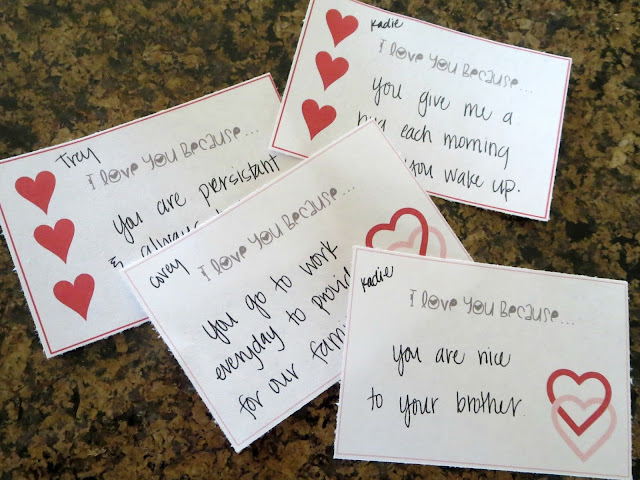 Kadie
I love you Because...
you give me a
hug each morning
you wake up.
Troy
I love you Because...
you are persistant
& always
corey
I love you Because...
you go to work
everyday to provid
for our fami
Kadie
I love you Because...
you are nice
to your brother.